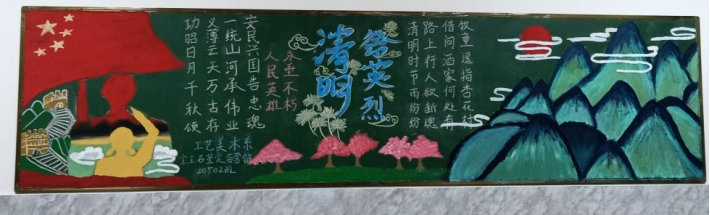 功昭日月千秋颂
义薄云天万古存
一统山河承伟业
安民兴国告忠魂
人民英雄
永垂不朽
清明
祭英烈
清明时节雨纷纷
路上行人欲断魂
借问酒家何处有
牧童遥指杏花村
工艺美术系